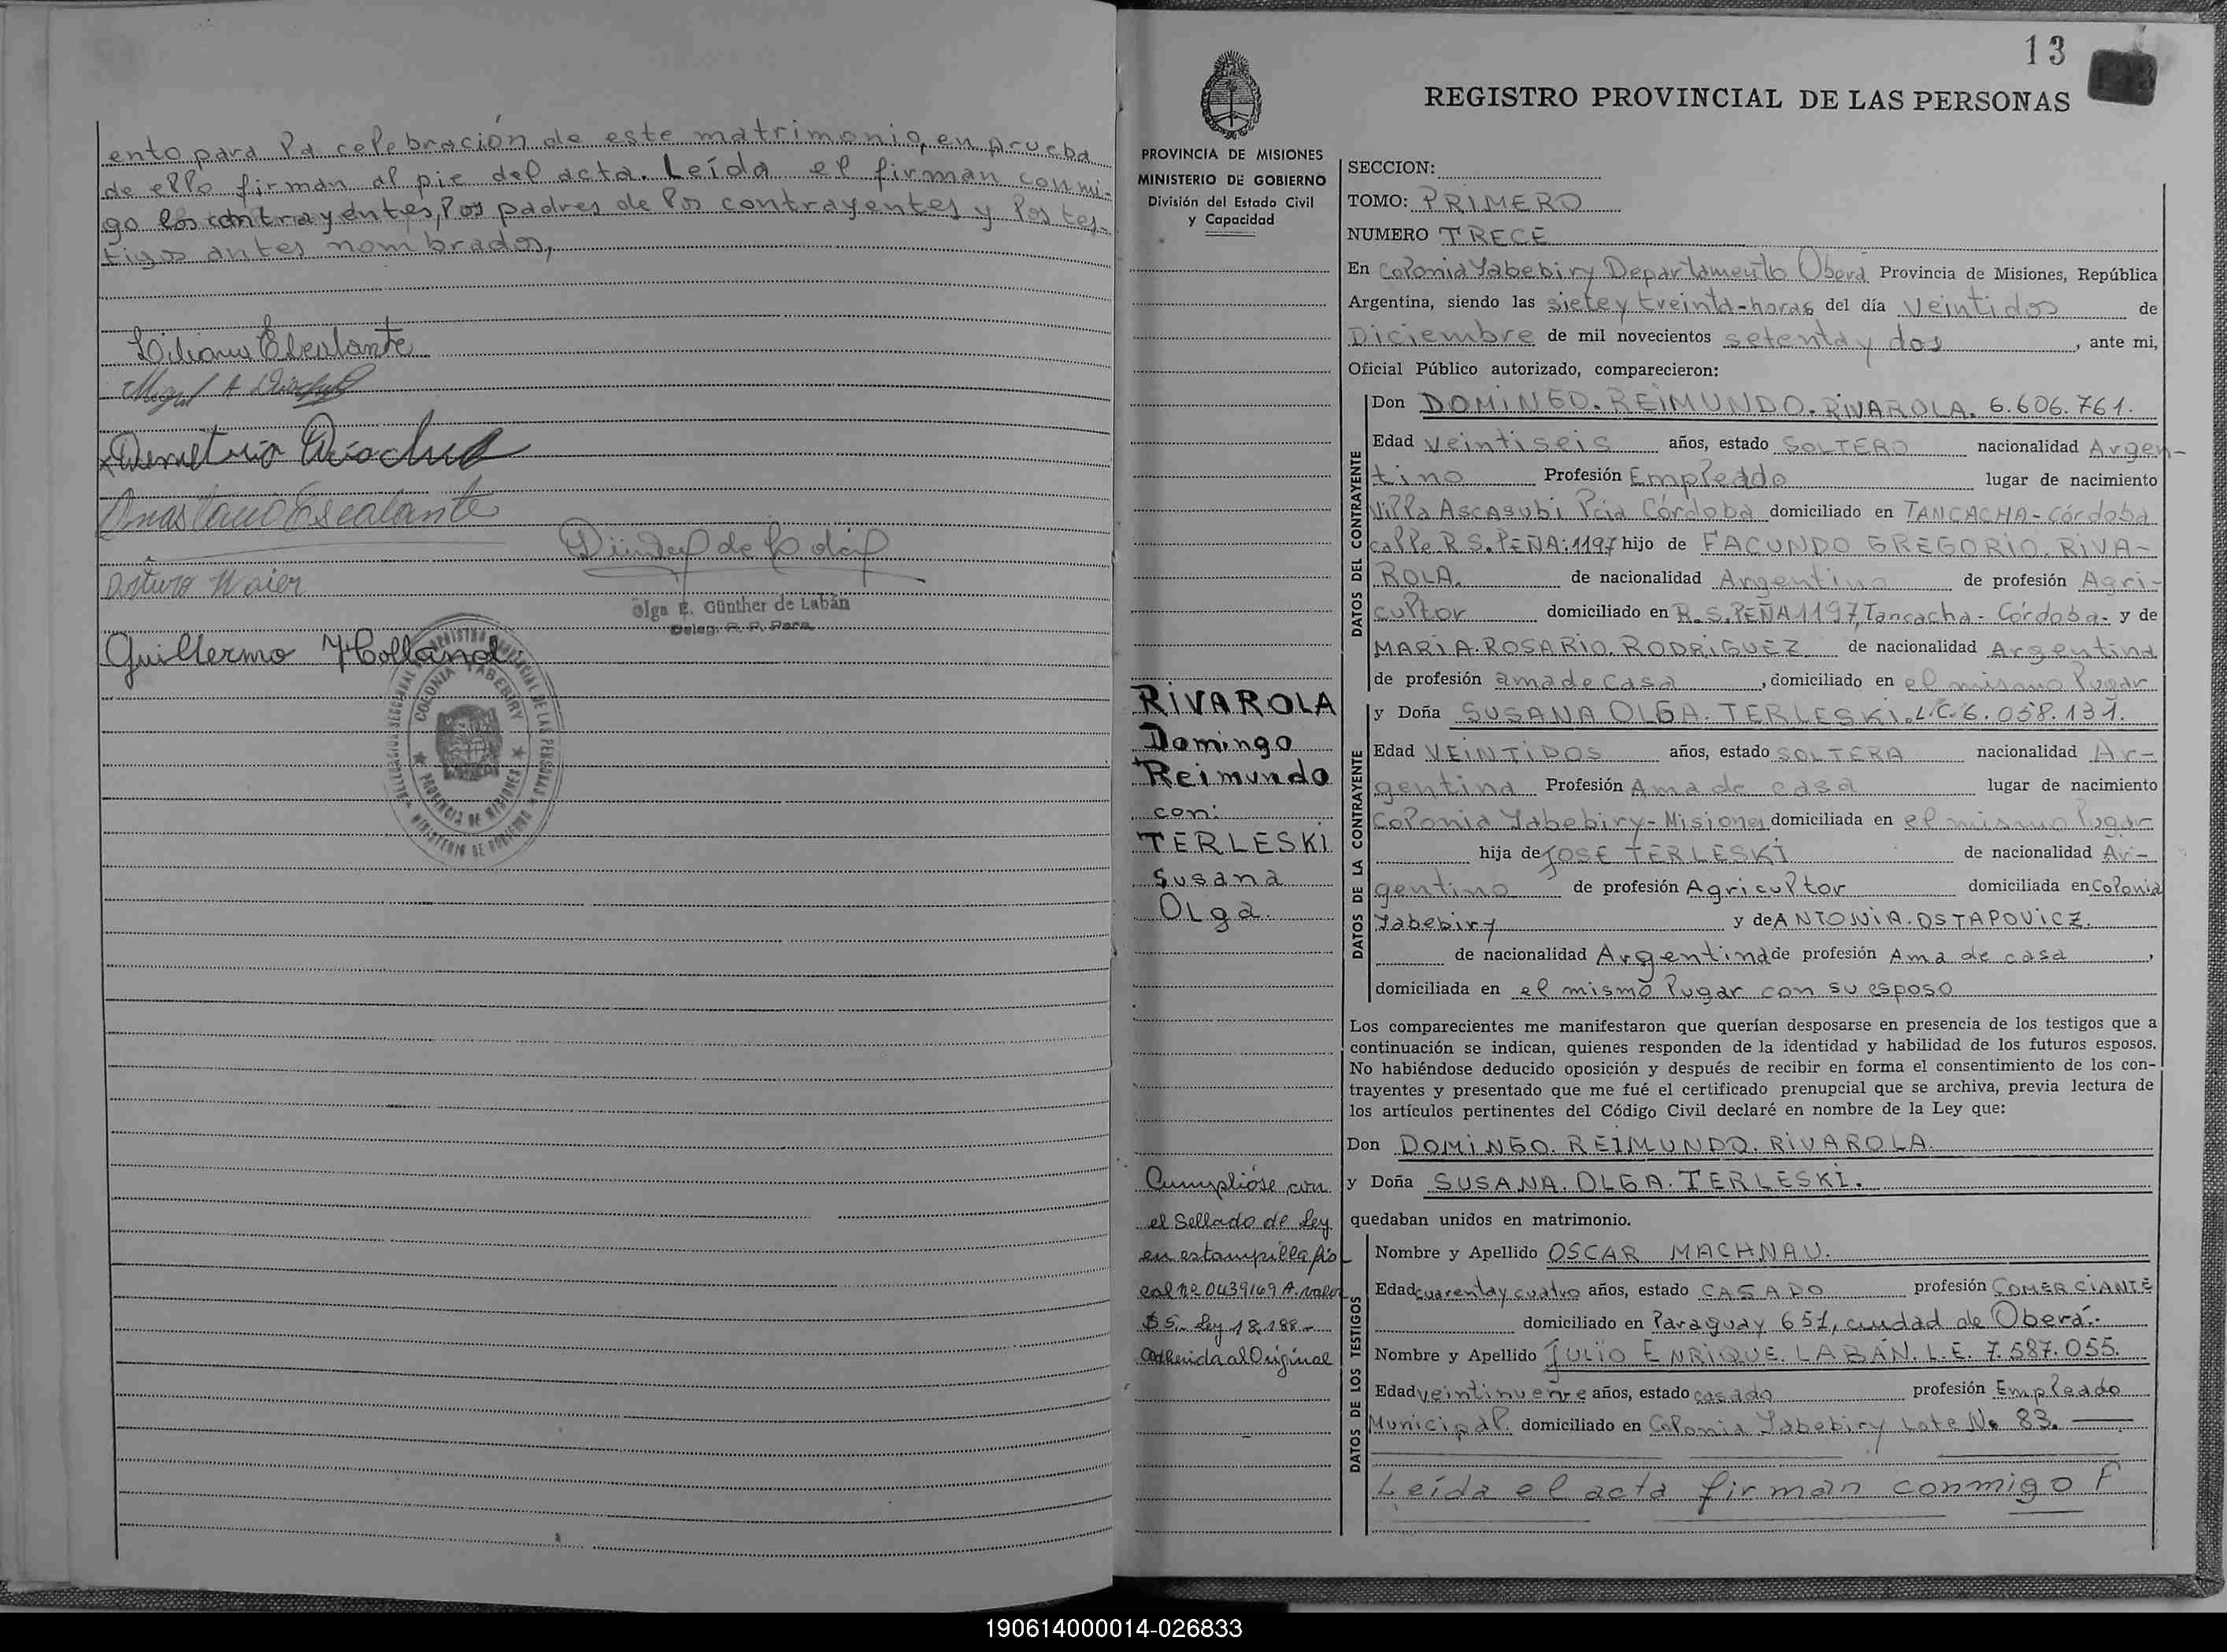 ento para la celebración de este matrimonio, en prueba
de ello firman al pie del acta. Leída el firman conmi-
go los contrayentes, los padres de los contrayentes y los tes-
tigos antes nombrados,
Liliana Escalante
Miguel A.
Demetrio
Anastacio Escalante
Arturo Maier
Olga E. Günther de Labán
Deleg. R. P. Pers.
Guillermo Holland
COLONIA YABEBIRY
PROVINCIA DE MISIONES
MINISTERIO DE GOBIERNO
13
REGISTRO PROVINCIAL DE LAS PERSONAS
PROVINCIA DE MISIONES
MINISTERIO DE GOBIERNO
División del Estado Civil
y Capacidad
RIVAROLA
Domingo
Reimundo
con:
TERLESKI
Susana
OLga.
Cumplióse con
el Sellado de Ley
en estampilla fis
cal nº 0439169 A. valor
$ 5.- Ley 18.188.-
adherida al Original
SECCION:
TOMO: PRIMERO
NUMERO TRECE
En Colonia Yabebiry Departamento Oberá Provincia de Misiones, República
Argentina, siendo las siete y treinta-horas del día Veintidos de
Diciembre de mil novecientos setenta y dos, ante mi,
Oficial Público autorizado, comparecieron:
DATOS DEL CONTRAYENTE
Don DOMINGO. REIMUNDO. RIVAROLA. 6.606.761.
Edad Veintiseis años, estado SOLTERO nacionalidad Argen-
tino Profesión Empleado lugar de nacimiento
Villa Ascasubi Pcia Córdoba domiciliado en TANCACHA-Córdoba
calle R.S.PEÑA:1197 hijo de FACUNDO GREGORIO. RIVA-
ROLA. de nacionalidad Argentino de profesión Agri-
cultor domiciliado en R.S.PEÑA 1197, Tancacha- Córdoba- y de
MARIA. ROSARIO. RODRIGUEZ. de nacionalidad Argentina
de profesión ama de casa, domiciliado en el mismo lugar
DATOS DE LA CONTRAYENTE
y Doña SUSANA OLGA. TERLESKI. L.C. 6.058.131.
Edad VEINTIDOS años, estado SOLTERA nacionalidad Ar-
gentina Profesión Ama de casa lugar de nacimiento
Colonia Yabebiry-Misiones domiciliada en el mismo lugar
hija de JOSE TERLESKI de nacionalidad Ar-
gentino de profesión Agricultor domiciliada en Colonia
Yabebiry y de ANTONIA. OSTAPOVICZ.
de nacionalidad Argentina de profesión Ama de casa,
domiciliada en el mismo lugar con su esposo
Los comparecientes me manifestaron que querían desposarse en presencia de los testigos que a
continuación se indican, quienes responden de la identidad y habilidad de los futuros esposos.
No habiéndose deducido oposición y después de recibir en forma el consentimiento de los con-
trayentes y presentado que me fué el certificado prenupcial que se archiva, previa lectura de
los artículos pertinentes del Código Civil declaré en nombre de la Ley que:
Don DOMINGO. REIMUNDO. RIVAROLA.
y Doña SUSANA. OLGA. TERLESKI.
quedaban unidos en matrimonio.
DATOS DE LOS TESTIGOS
Nombre y Apellido OSCAR MACHNAU.
Edad cuarenta y cuatro años, estado CASADO profesión COMERCIANTE
domiciliado en Paraguay 651, ciudad de Oberá.-
Nombre y Apellido JULIO ENRIQUE. LABÁN. L.E. 7.587.055.
Edad veintinueve años, estado casado profesión Empleado
Municipal. domiciliado en Colonia Yabebiry Lote No 83.
Leída el acta firman conmigo
190614000014-026833